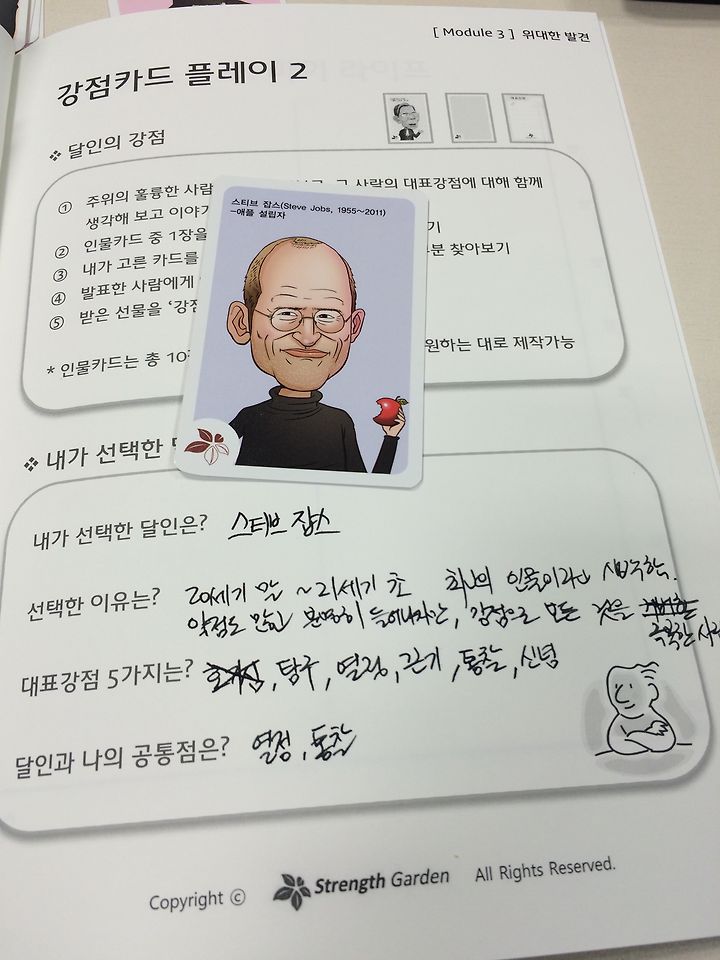 [ Module 3 ] 위대한 발견
강점카드 플레이 2
❖ 달인의 강점
① 주위의 훌륭한 사람 그 사람의 대표강점에 대해 함께
생각해 보고 이야기
② 인물카드 중 1장을 기
③ 내가 고른 카드를 부분 찾아보기
④ 발표한 사람에게
⑤ 받은 선물을 '강점
* 인물카드는 총 10 원하는 대로 제작가능
스티브 잡스(Steve Jobs, 1955~2011)
-애플 설립자
❖ 내가 선택한
내가 선택한 달인은? 스티브 잡스
선택한 이유는? 20세기 말 ~ 21세기 초 최고의 인물이라고 생각한다.
약점도 많고 분명히 드러나지만, 강점으로 모든 것을
극복한 사람
대표강점 5가지는? , 탐구, 열정, 끈기, 통찰, 신념
달인과 나의 공통점은? 열정, 통찰
Copyright ⓒ Strength Garden All Rights Reserved.